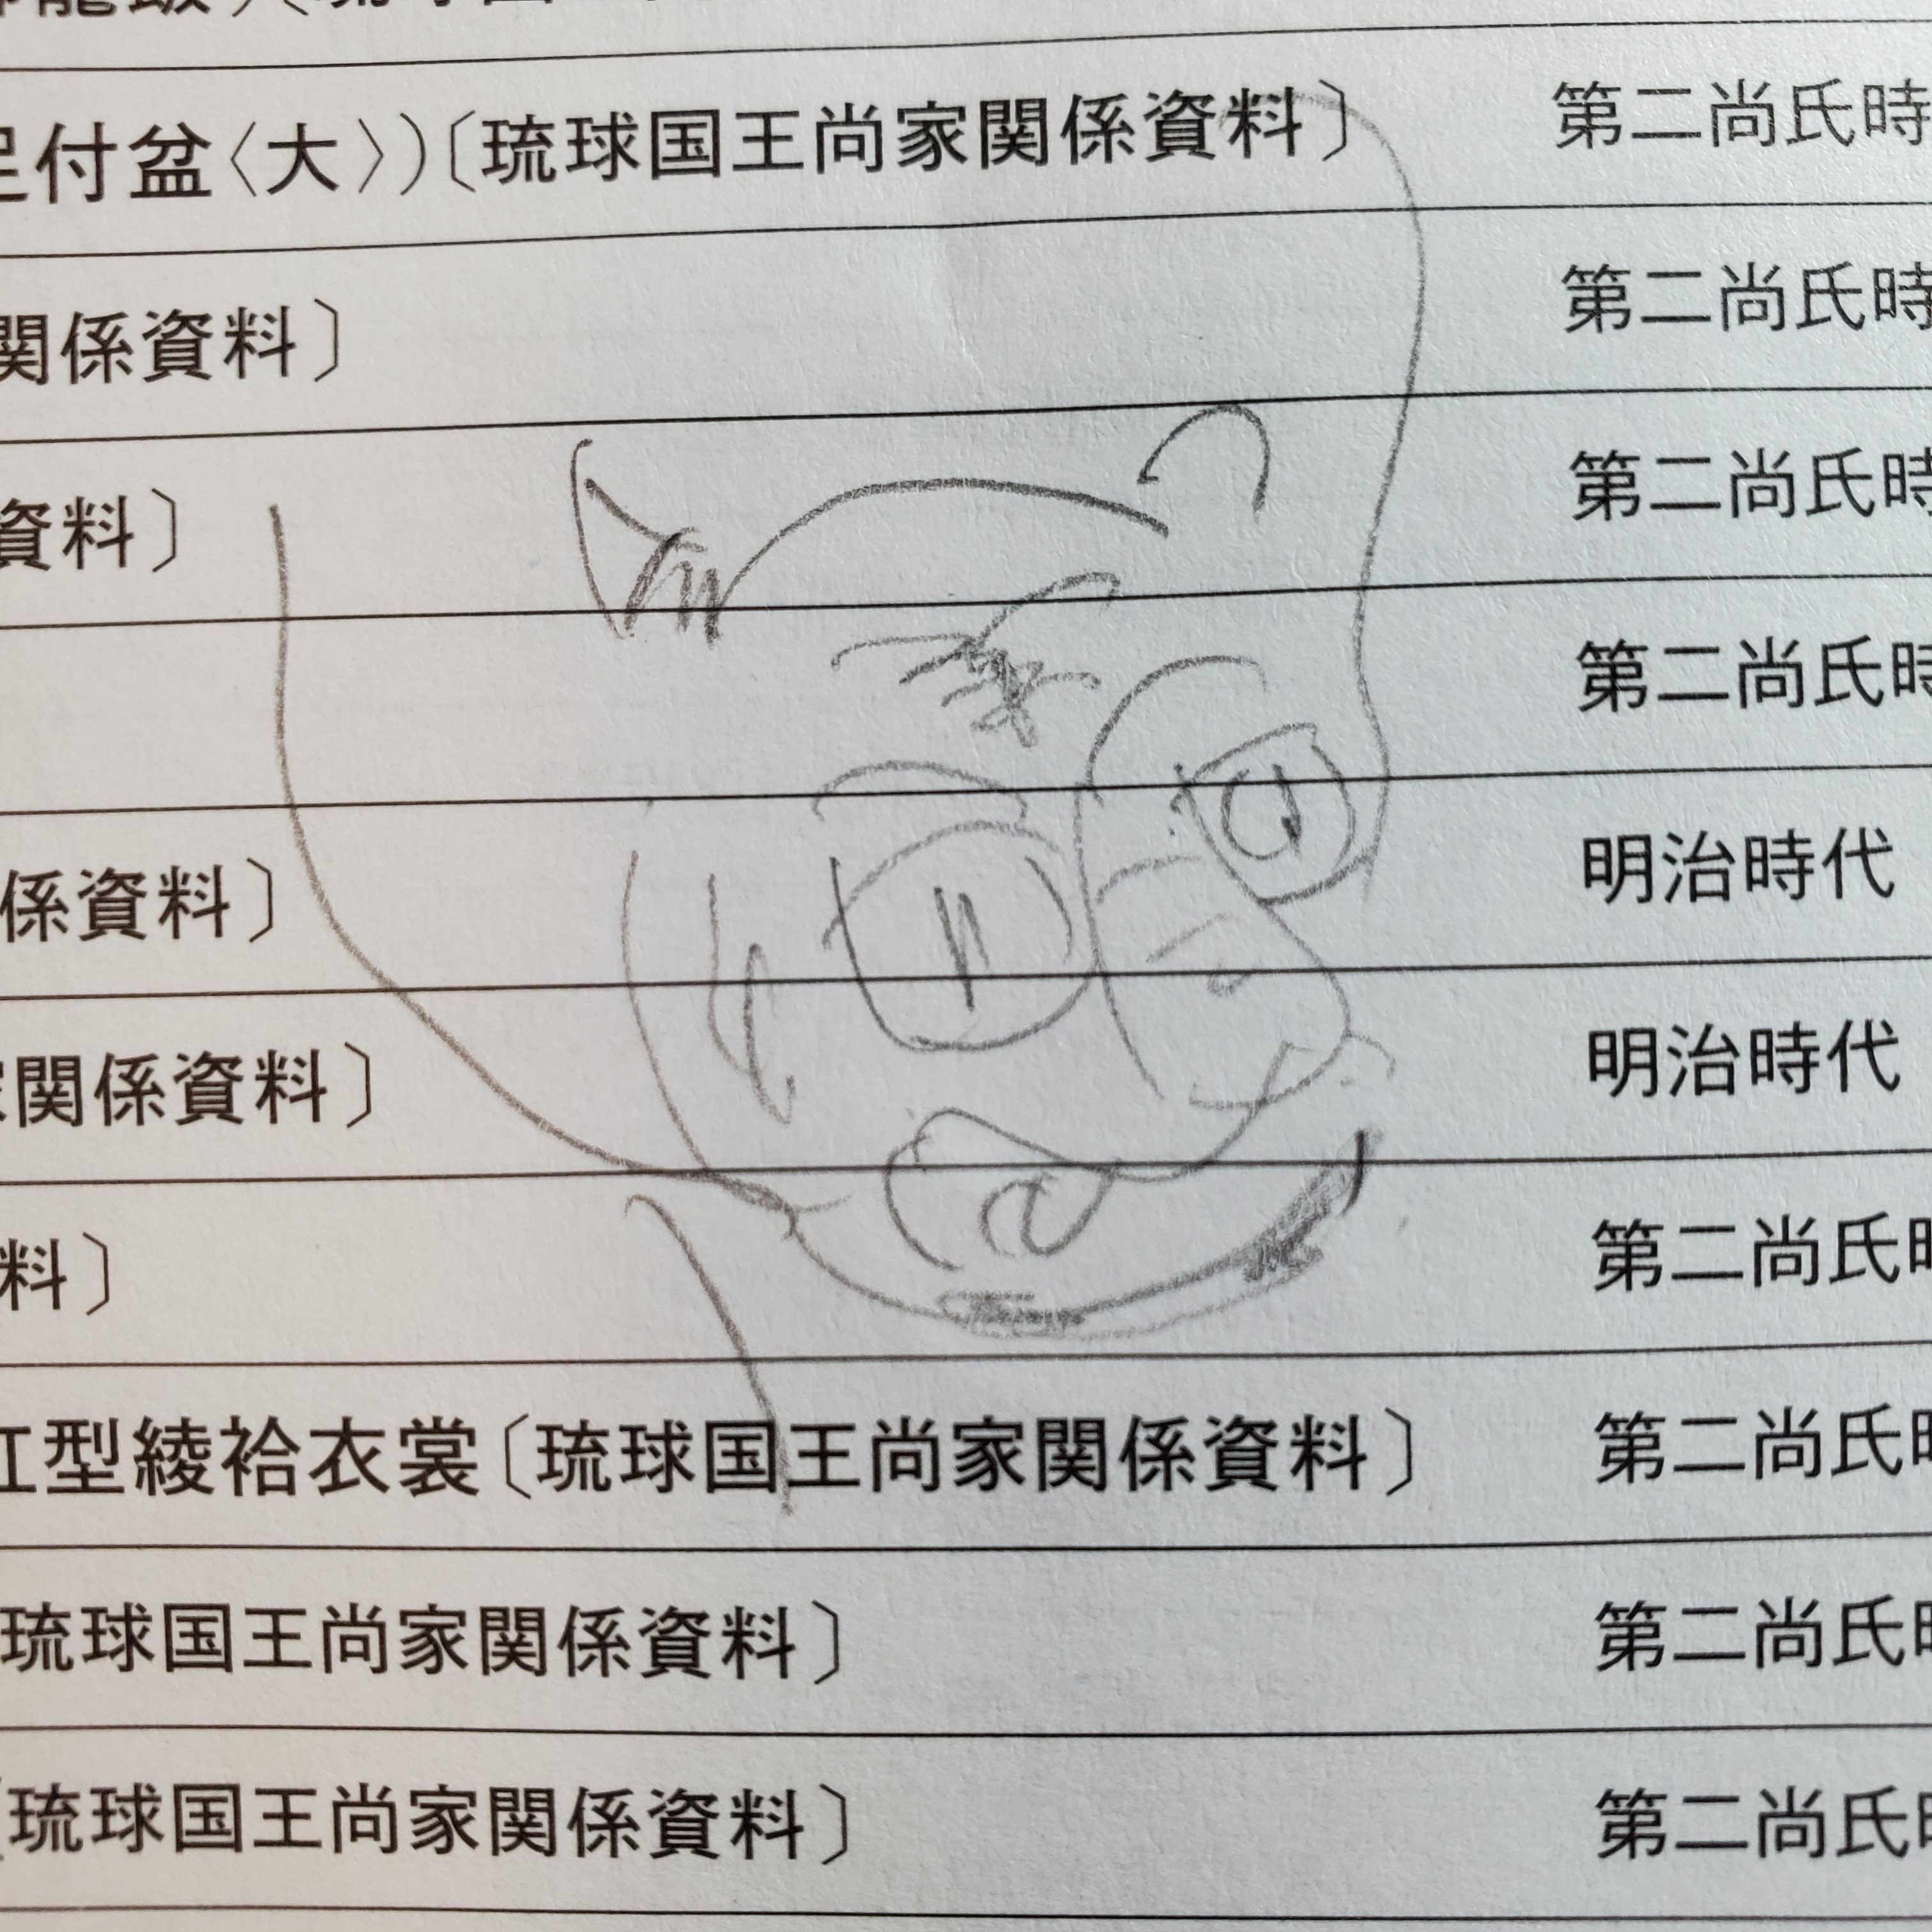 足付盆〈大〉)〔琉球国王尚家関係資料〕 第二尚氏時
関係資料〕 第二尚氏時
資料〕 第二尚氏時
第二尚氏時
係資料〕 明治時代
家関係資料〕 明治時代
料〕 第二尚氏時
紅型綾袷衣裳〔琉球国王尚家関係資料〕 第二尚氏時
琉球国王尚家関係資料〕 第二尚氏時
〔琉球国王尚家関係資料〕 第二尚氏時